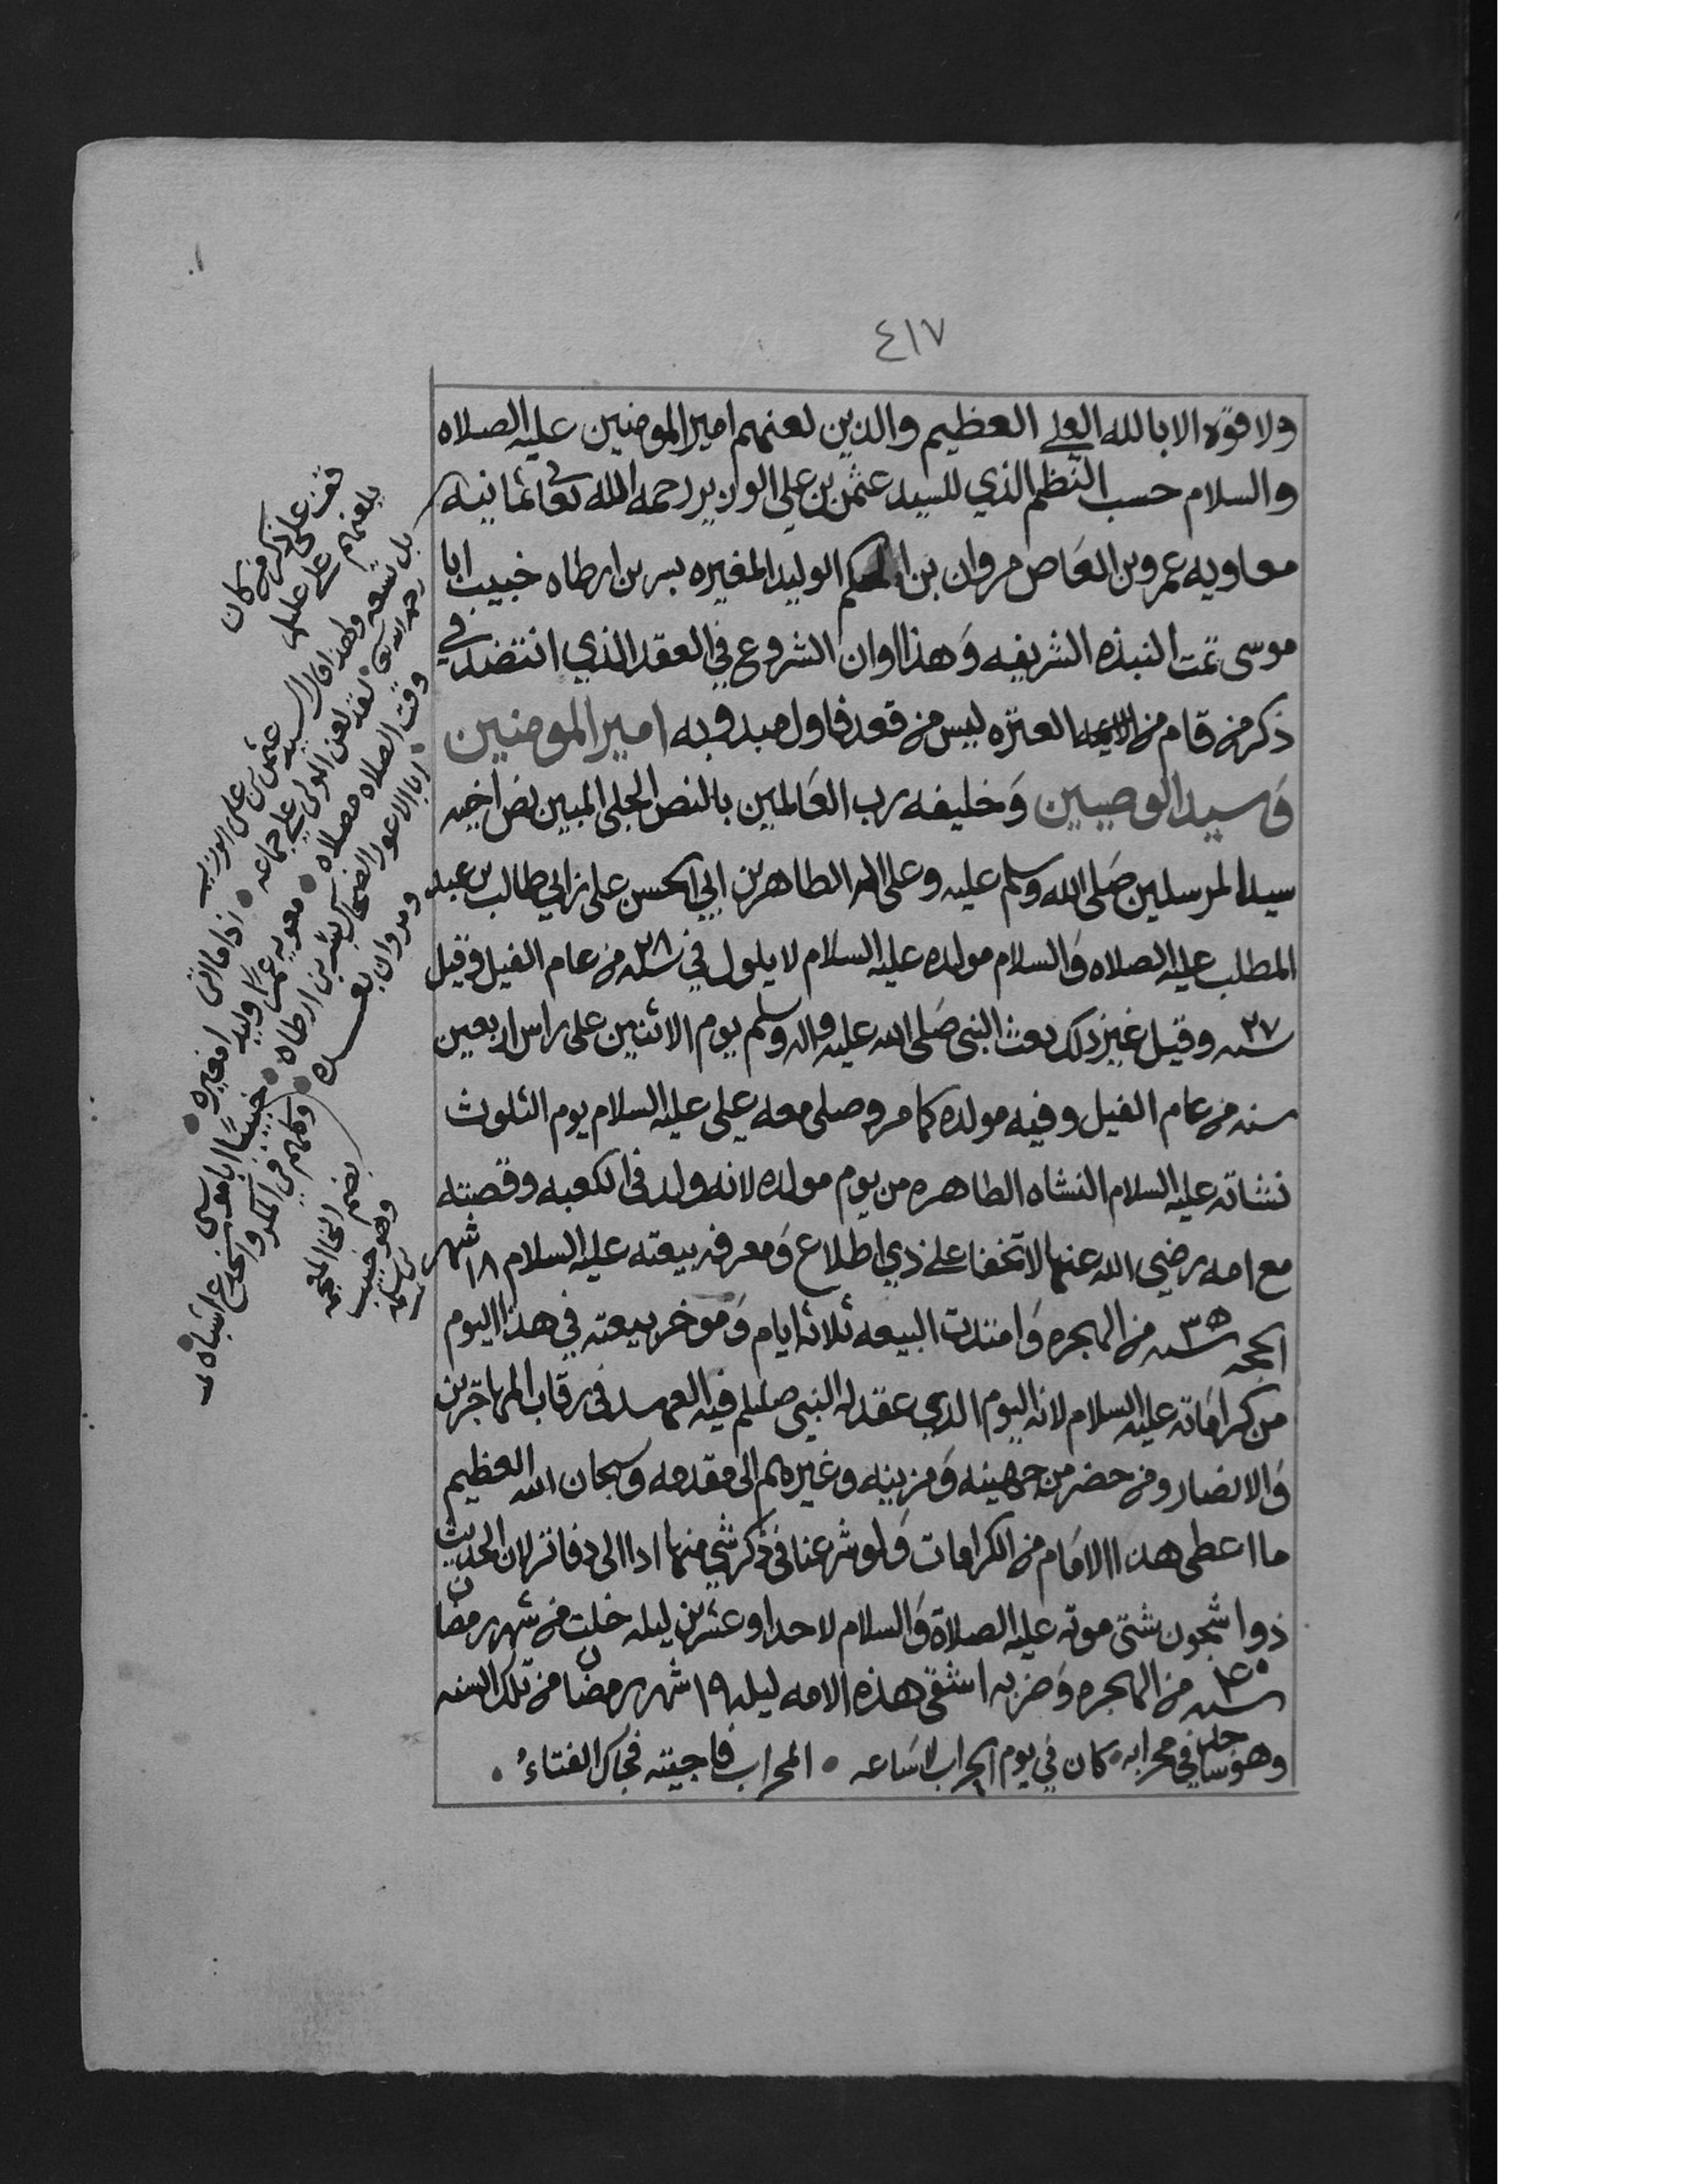 ٤١٧
ولا قوه الا بالله العلي العظيم والذين لعنهم امير المومنين عليه الصلاه
والسلام حسب النظم الذي للسيد عثمن بن علي الوزير رحمه الله تعالى ثمانيه
معاويه عمرو بن العاص مروان بن الحكم الوليد المغيره بسر بن ارطاه خبيب ابا
موسى تمت النبذه الشريفه وهذا اوان الشروع في العقد الذي انتضد في
ذكر من قام من الايمه العتره ليس من قعد فاول مبدو به امير المومنين
وسيد الوصيين وخليفه رب العالمين بالنص الجلي المبين نص اخيه
سيد المرسلين صلى الله وسلم عليه وعلى اله الطاهرين ابي الحسن علي بن ابي طالب بن عبد
المطلب عليه الصلاه والسلام مولده عليه السلام لايلول في سنه ٢٨ من عام الفيل وقيل
سنه ٢٧ وقيل غير ذلك بعث النبي صلى الله عليه واله وسلم يوم الاثنين على راس اربعين
سنه من عام الفيل وفيه مولده كما مر وصلى معه علي عليه السلام يوم الثلوث
نشاته عليه السلام النشاه الطاهره من يوم مولده لانه ولد في الكعبه وقصته
مع امه رضي الله عنها لا تخفا على ذي اطلاع ومعرفه بيعته عليه السلام ١٨ شهر
الحجه سنه ٣٥ من الهجره وامتدت البيعه ثلاثه ايام وموخر بيعته في هذا اليوم
من كراماته عليه السلام لانه اليوم الذي عقد له النبي صللم فيه العهد في رقاب المهاجرين
والانصار ومن حضر من جهينه ومزينه وغيرهم الى مقدمه وسبحان الله العظيم
ما اعطى هذا الامام من الكرامات ولو شرعنا في ذكر شي منها ادا الى دفاتر لان الحديث
ذوا شجون شتى موته عليه الصلاة والسلام لاحدا وعشرين ليله خلت من شهر رمضان
سنه ٤٠ من الهجره وضربه اشقى هذه الامه ليله ١٩ شهر رمضان من تلك السنه
وهو في محرابه كان في يوم الحراب لا ساعه • المحراب فاجيته فجاك الفتاء •
بلعنهم علي عليلم
بل تسعه ولهذا قال السيد عثمن بن علي الوزير
رحمه الله • لقد لعن المولى علي جماعه • اذا ما اتى
وقت الصلاه مصلاه • معويه عمرا وليد امغيره •
ابا الاعور الضحاك بسر بن ارطاه • خبيبا ابا موسى
ومروان بعده • وكلهم في المكر والخدع اشباه
بضم الخا المعجمه
وهو خبيب